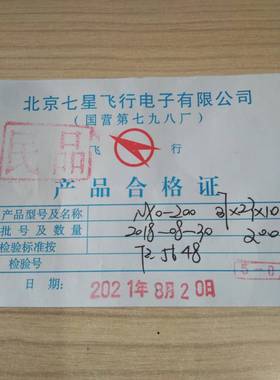 北京七星飞行电子有限公司
(国营第七九八厂)
民品
飞 行
产品合格证
产品型号及名称 NX0-200 37×23×10
批号及数量 2018-08-30 200
检验标准按 72.5648
检验号
日期: 2021年8月20日